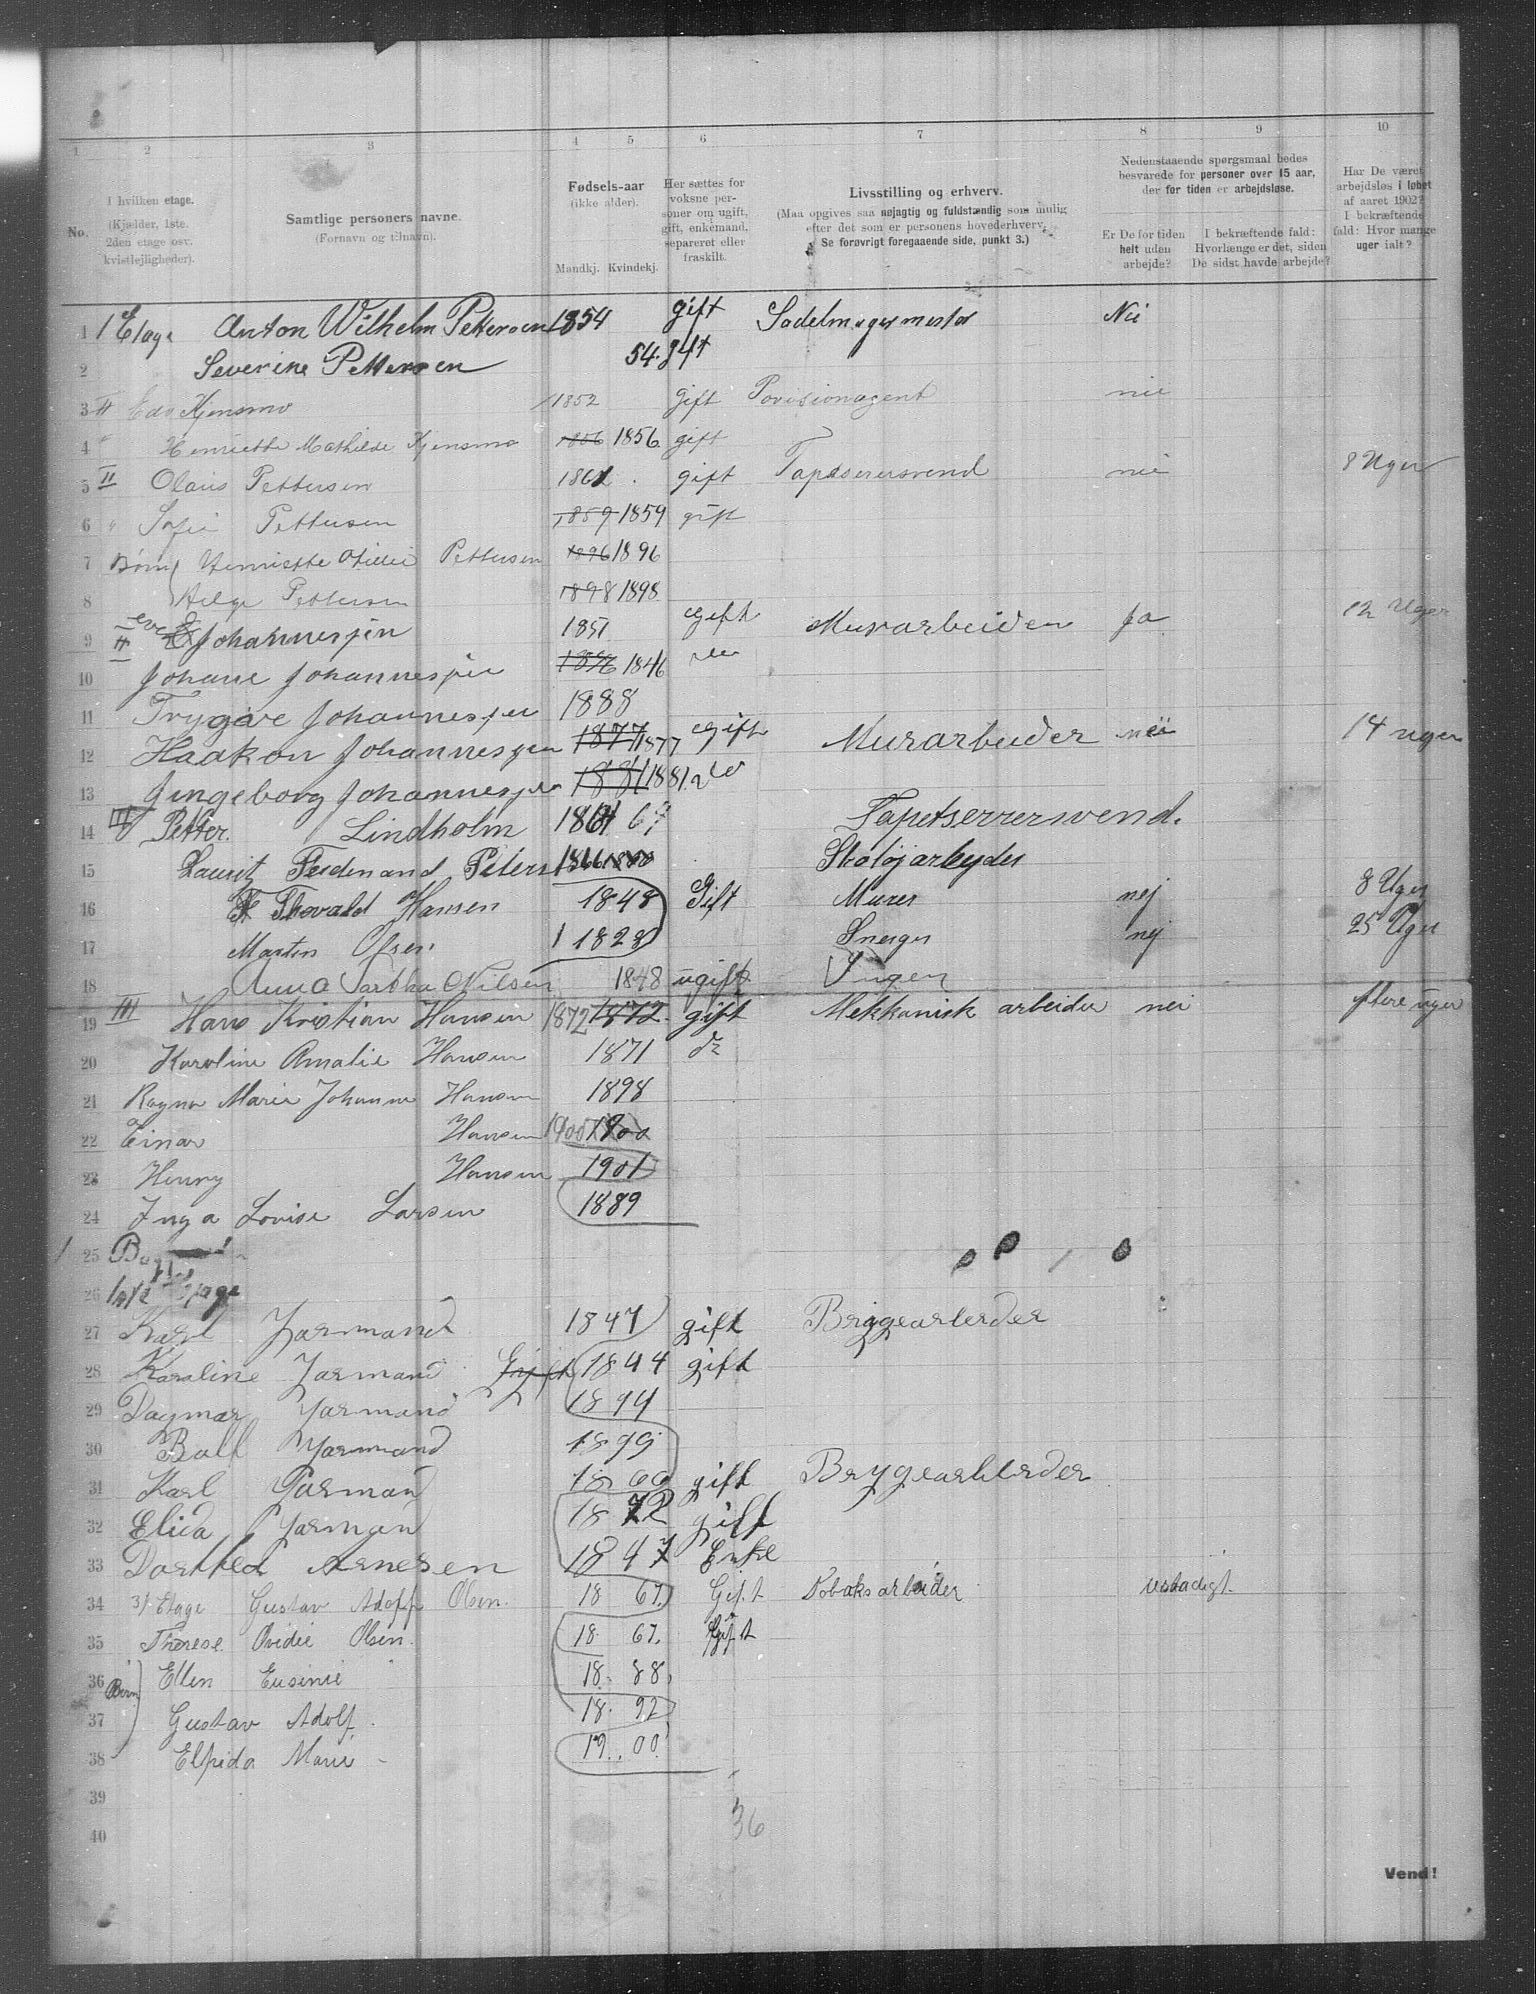 1 2 3 4 5 6 7 8 9 10
No.
I hvilken etage.
(Kjælder, 1ste.
2den etage osv.
kvistlejligheder).
Samtlige personers navne.
(Fornavn og tilnavn).
Fødsels-aar
(ikke alder).
Mandkj. Kvindekj.
Her sættes for
voksne per-
soner om ugift,
gift, enkemand,
separeret eller
fraskilt.
Livsstilling og erhverv.
(Maa opgives saa nøjagtig og fuldstændig som mulig
efter det som er personens hovederhverv.
Se forøvrigt foregaaende side, punkt 3.)
Nedenstaaende spørgsmaal bedes
besvarede for personer over 15 aar,
der for tiden er arbejdsløse.
Er De for tiden
helt uden
arbejde?
I bekræftende fald:
Hvorlænge er det, siden
De sidst havde arbejde?
Har De været
arbejdsløs i løbet
af aaret 1902?
I bekræftende
fald: Hvor mange
uger ialt?
1 1 Etage Anton Wilhelm Pettersen 1854 gift Sadelmagermester Nei
2 Severine Pettersen 54. gift
3 II Kjensmo 1852 gift Povisionagent nie
4 Henriette Mathilde Kjensmo 1856 1856 gift
5 II Olaus Pettersen 1861 gift Tapeserersvend nie 8 Uger
6 Sofie Pettersen 1859 1859 gift
7 Børn Henriette Pettersen 1896 1896
8 Helge Pettersen 1898 1898
9 II Johannesjen 1851 gift Murarbeider Ja 12 Uger
10 Johane Johannesjen 1846 1846
11 Trygve Johannesjen 1888
12 Haakon Johannesjen 1877 1877 gift Murarbeider nei 14 uger
13 Jngeborg Johannesjen 1881 1881
14 III Petter. Lindholm 67 Tapetserersvend.
15 Laurit Ferdenand Peters 1866 Skotøjarbejder
16 Thovald Hansen 1848 Gift Murer nej 8 Uger
17 Martin Olsen 1828 Sneger nej 25 Uger
18 Anna Nilsen 1848 ugift Ingen
19 III Hans Kristian Hansen 1872 1872 gift Mekkanisk arbeider nei flere uger
20 Karoline Amalie Hansen 1871 do
21 Ragna Marie Johanne Hansen 1898
22 Einar Hansen 1900 1900
23 Henry Hansen 1901
24 Inga Lovise Larsen 1889
25
26 1ste Etage
27 Karl Jarmand 1847 gift Bryggearbeider
28 Karoline Jarmand Gift 1844 gift
29 Dagmar Jarmand 1894
30 Jarmand 1899
31 Karl Jarmand gift Brygearbeider
32 Elida Jarman 1872 gift
33 Dorthea Arnesen 1847 Enke
34 3/ Etage Gustav Adolf Olsen. 18 67. Gift Tobaksarbeider ustadigt
35 Therese Ovidie Olsen. 18 67. Gift
36 Børn Ellen Eusinie 18. 88.
37 Gustav Adolf. 18. 92
38 Elpida Marie 19. 00.
39
40
36
Vend!